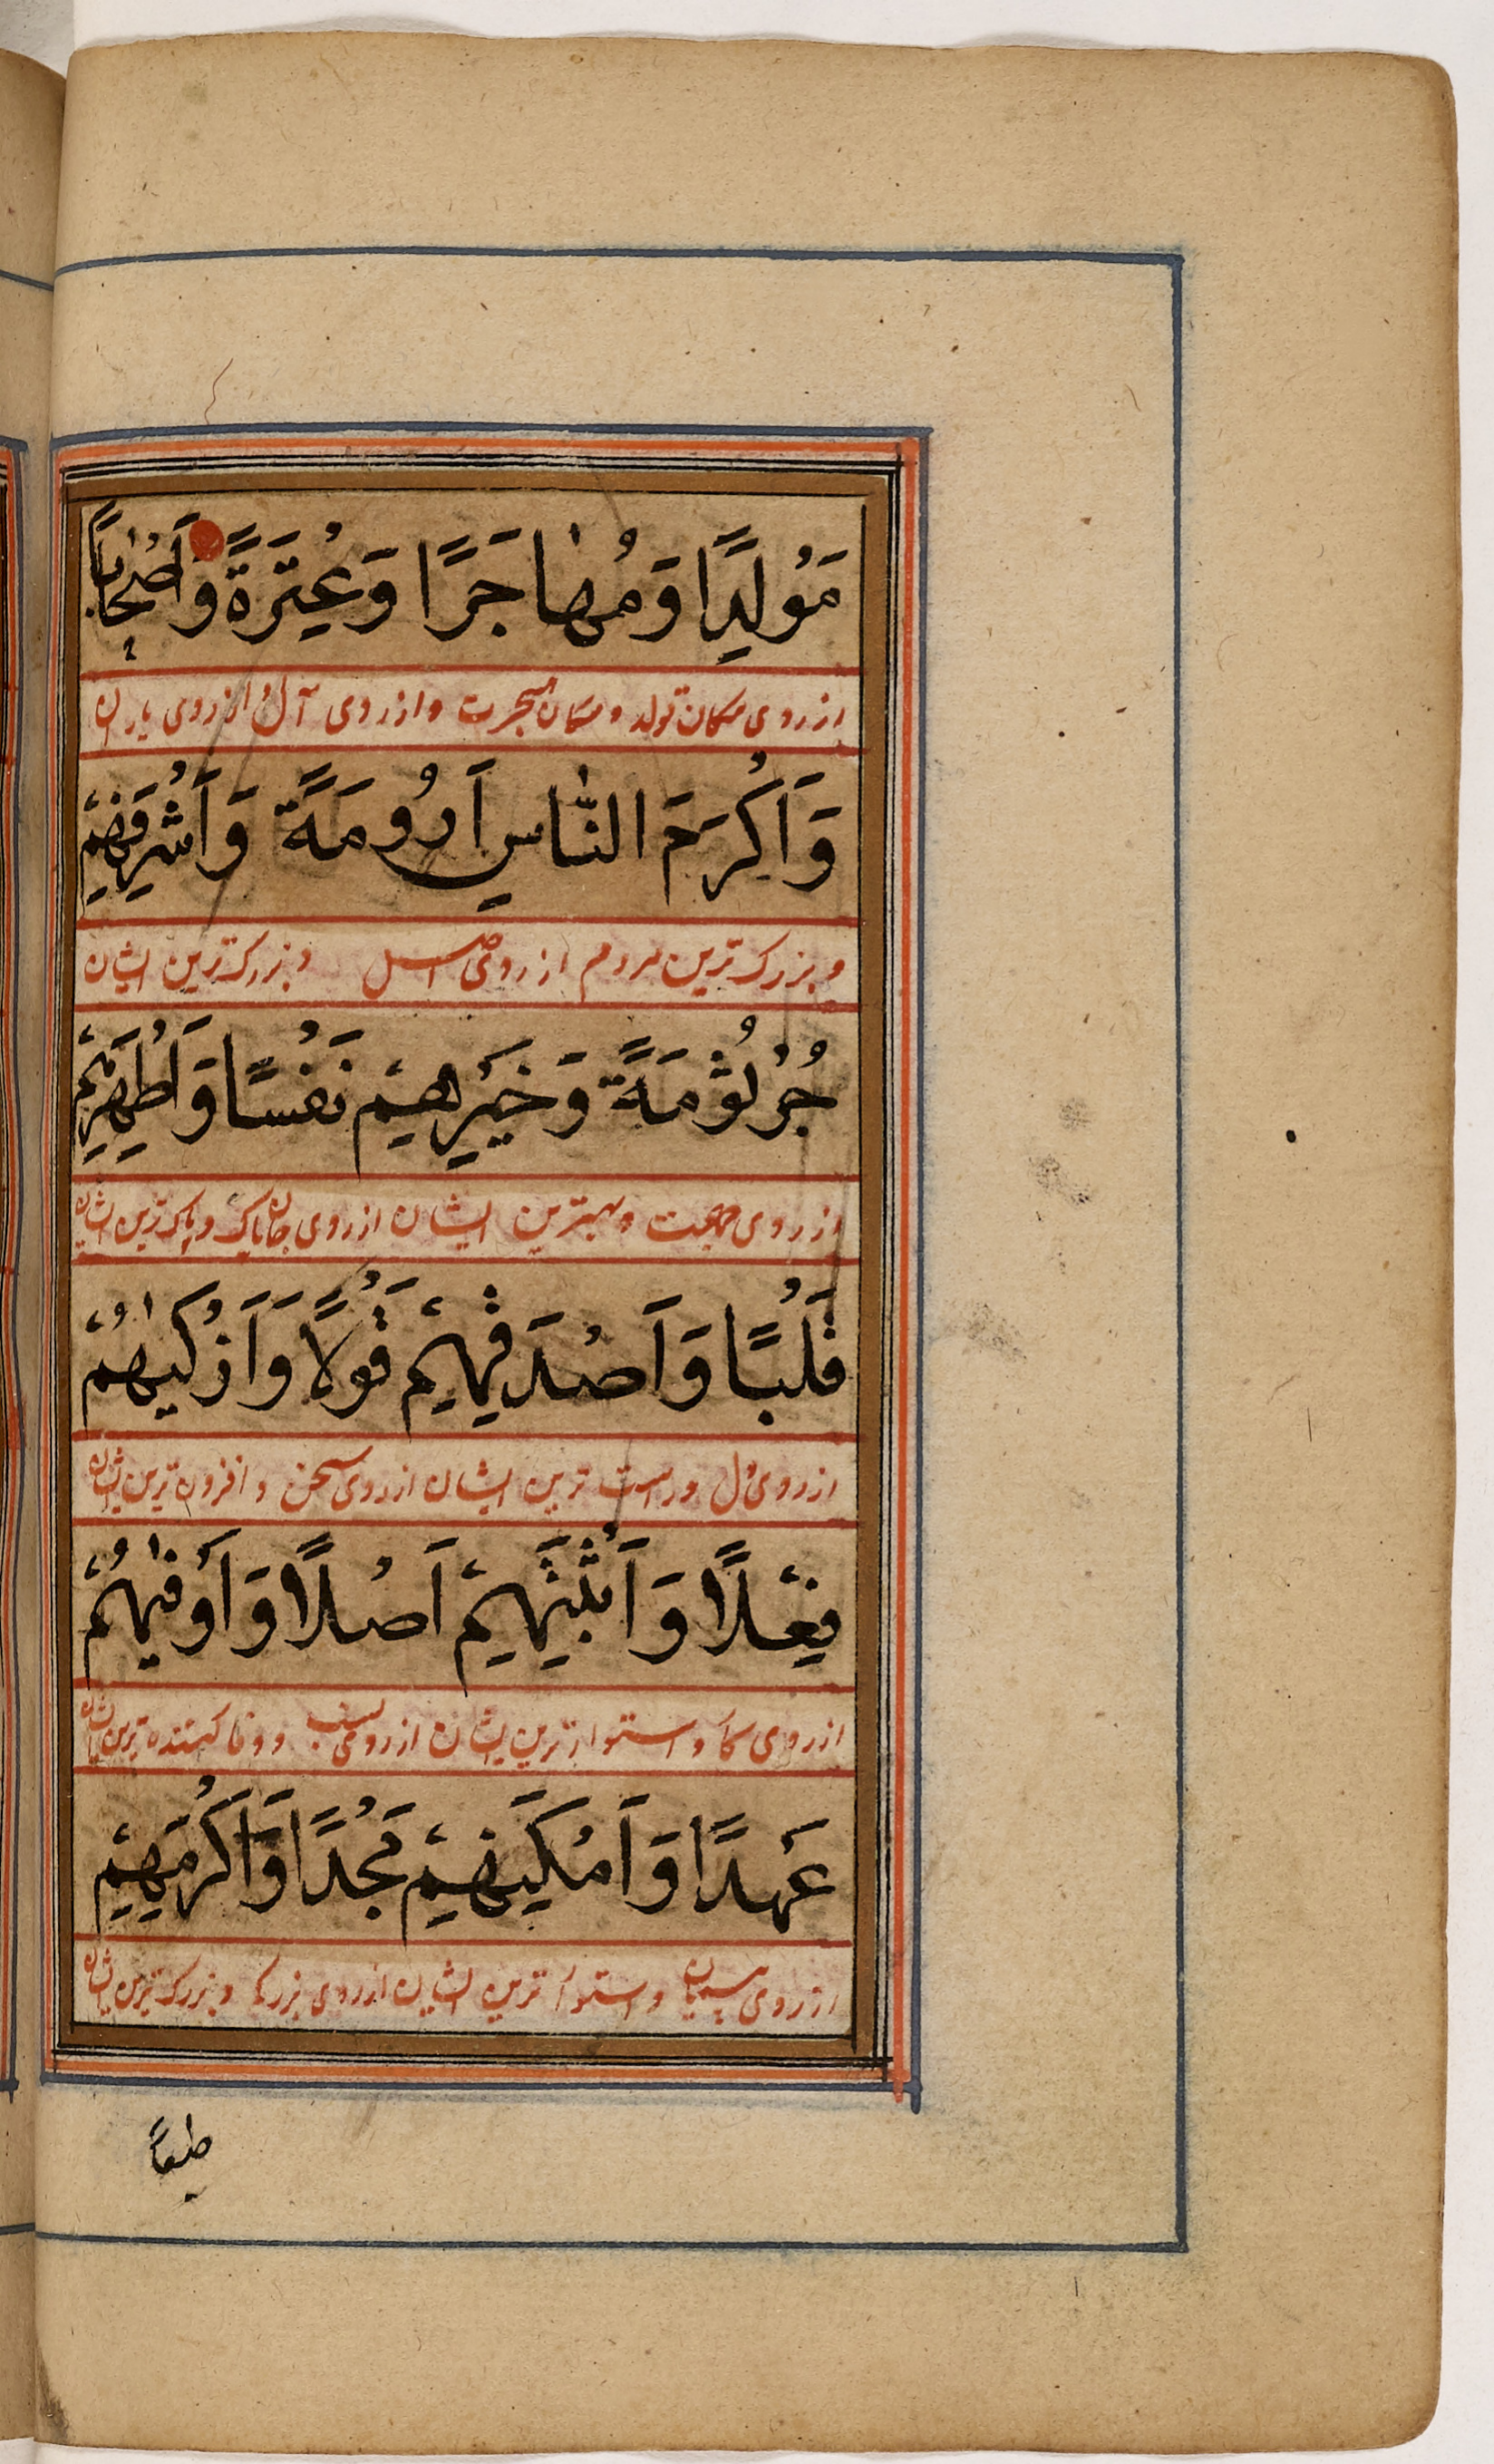 مَوْلِدًا وَمُهاجَرًا وَعِتْرَةً وَاَصْحَابًا
از روی مکان تولد و مکان هجرت و از روی آل و از روی یاران
وَاَكْرِمَ النَّاسِ اَرُومَةً وَاَشْرَفِهِمْ
و بزرک ترین مردم از روی اصل و بزرک ترین ایشان
جُرْثُوْمَةً وَخَيْرِهِمْ نَفْسًا وَاَطْهَرِهِمْ
از روی و بهترین ایشان از روی جان پاک و پاک ترین ایشان
قَلْبًا وَاَصْدَقِهِمْ قَوْلًا وَاَزْكٰيهُمْ
از روی دل و راست ترین ایشان از روی سخن و افزون ترین ایشان
فِعْلًا وَاَثْبَتِهِمْ اَصْلًا وَاَوْفٰيهُمْ
از روی کار و استوارترین ایشان از روی نسب و وفا کننده ترین ایشان
عَهْدًا وَاَمْكَنِهِمْ مَجْدًا وَاَكْرَمِهِمْ
از روی پیمان و استوار ترین ایشان از روی بزرکی و بزرک ترین ایشان
طبعًا